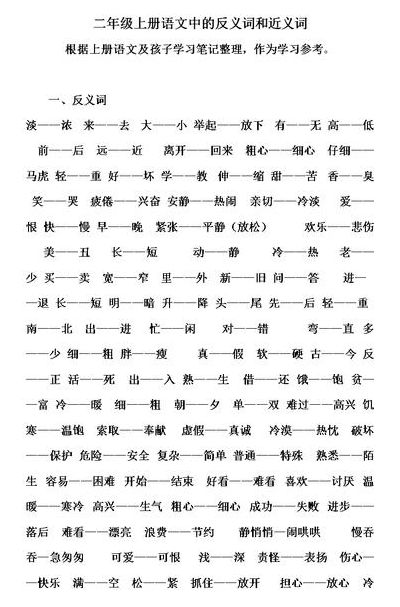 二年级上册语文中的反义词和近义词
根据上册语文及孩子学习笔记整理，作为学习参考。
一、反义词
淡——浓 来——去 大——小 举起——放下 有——无 高——低
前——后 远——近 离开——回来 粗心——细心 仔细——
马虎 轻——重 好——坏 学——教 伸——缩 甜——苦 香——臭
笑——哭 疲倦——兴奋 安静——热闹 亲切——冷淡 爱——
恨 快——慢 早——晚 紧张——平静（放松） 欢乐——悲伤
美——丑 长——短 动——静 冷——热 老——
少 买——卖 宽——窄 里——外 新——旧 问——答 进—
—退 长——短 明——暗 升——降 头——尾 先——后 轻——重
南——北 出——进 忙——闲 对——错 弯——直 多
——少 细——粗 胖——瘦 真——假 软——硬 古——今 反
——正 活——死 出——入 熟——生 借——还 饿——饱 贫—
—富 冷——暖 细——粗 朝——夕 单——双 难过——高兴 饥
寒——温饱 索取——奉献 虚假——真诚 冷漠——热忱 破坏
——保护 危险——安全 复杂——简单 普通——特殊 熟悉——陌
生 容易——困难 开始——结束 好看——难看 喜欢——讨厌 温
暖——寒冷 高兴——生气 粗心——细心 成功——失败 进步——
落后 难看——漂亮 浪费——节约 静悄悄—闹哄哄 慢吞
吞—急匆匆 可爱——可恨 浅——深 责怪——表扬 伤心—
—快乐 满——空 松——紧 抓住——放开 担心——放心 冷